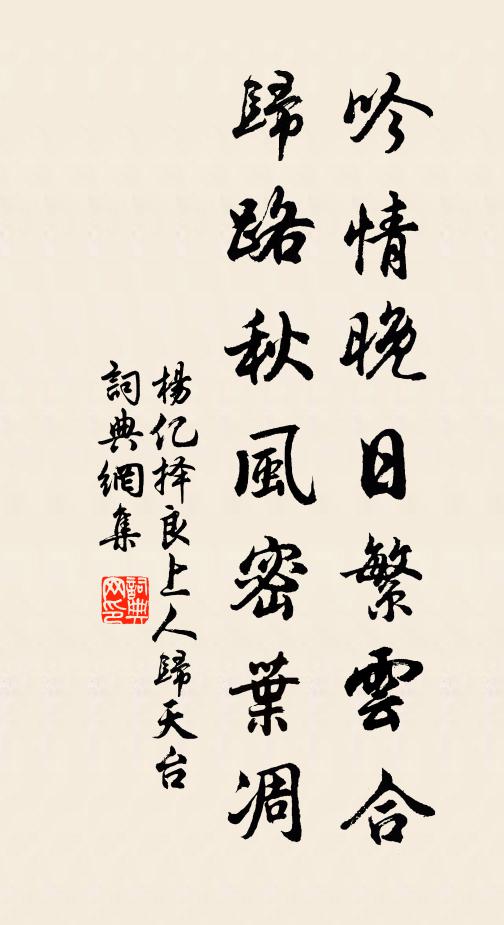 吟情晚日繁雲合
歸路秋風密葉凋
楊亿择良上人歸天台
詞典網集
詞典網印